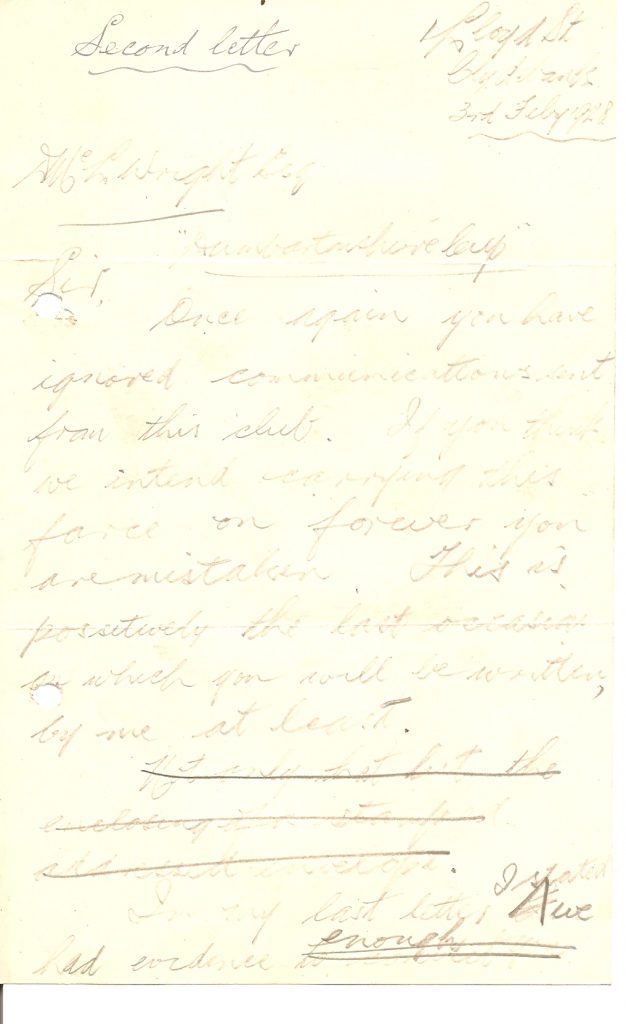 Second letter
Lloyd St
Clydebank
3rd Feby 1928
Wright Esq
"Dumbartonshire Cup"
Sir,
Once again you have
ignored communications sent
from this club. If you think
we intend carrying this
farce on forever you
are mistaken This is
possitively the last occasion
on which you will be written,
by me at least.
Not only that but the
enclosing of a stamped
addressed envelope.
I stated
In my last letter we
enough
had evidence